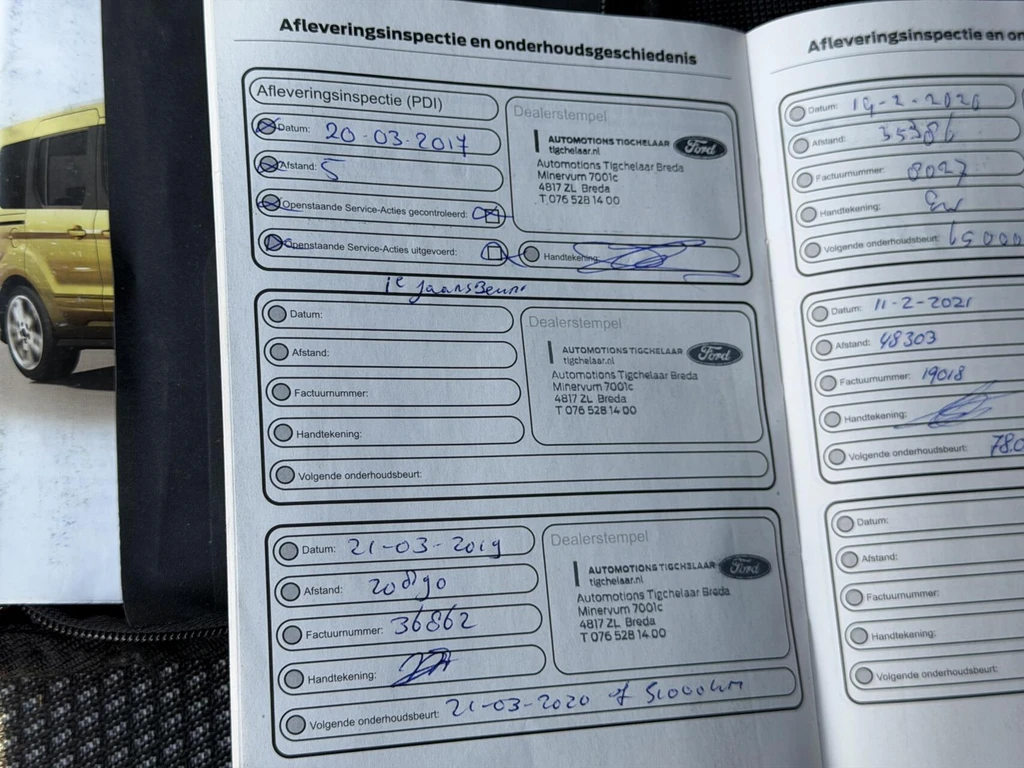 Afleveringsinspectie en onderhoudsgeschiedenis
Afleveringsinspectie (PDI)
Datum: 20-03-2017
Afstand: 5
Openstaande Service-Acties gecontroleerd:
Openstaande Service-Acties uitgevoerd:
Handtekening:
Dealerstempel
AUTOMOTIONS TIGCHELAAR
tigchelaar.nl
Ford
Automotions Tigchelaar Breda
Minervum 7001c
4817 ZL Breda
T 076 528 14 00
1e Jaarsbeurt
Datum:
Afstand:
Factuurnummer:
Handtekening:
Volgende onderhoudsbeurt:
Dealerstempel
AUTOMOTIONS TIGCHELAAR
tigchelaar.nl
Ford
Automotions Tigchelaar Breda
Minervum 7001c
4817 ZL Breda
T 076 528 14 00
Datum: 21-03-2019
Afstand:
Factuurnummer: 36862
Handtekening:
Volgende onderhoudsbeurt: 21-03-2020 of km
Dealerstempel
AUTOMOTIONS TIGCHELAAR
tigchelaar.nl
Ford
Automotions Tigchelaar Breda
Minervum 7001c
4817 ZL Breda
T 076 528 14 00
Afleveringsinspectie en on
Datum: 19-2-2020
Afstand: 35386
Factuurnummer: 8027
Handtekening:
Volgende onderhoudsbeurt:
Datum: 11-2-2021
Afstand: 48303
Factuurnummer: 19018
Handtekening:
Volgende onderhoudsbeurt: 78.0
Datum:
Afstand:
Factuurnummer:
Handtekening:
Volgende onderhoudsbeurt: